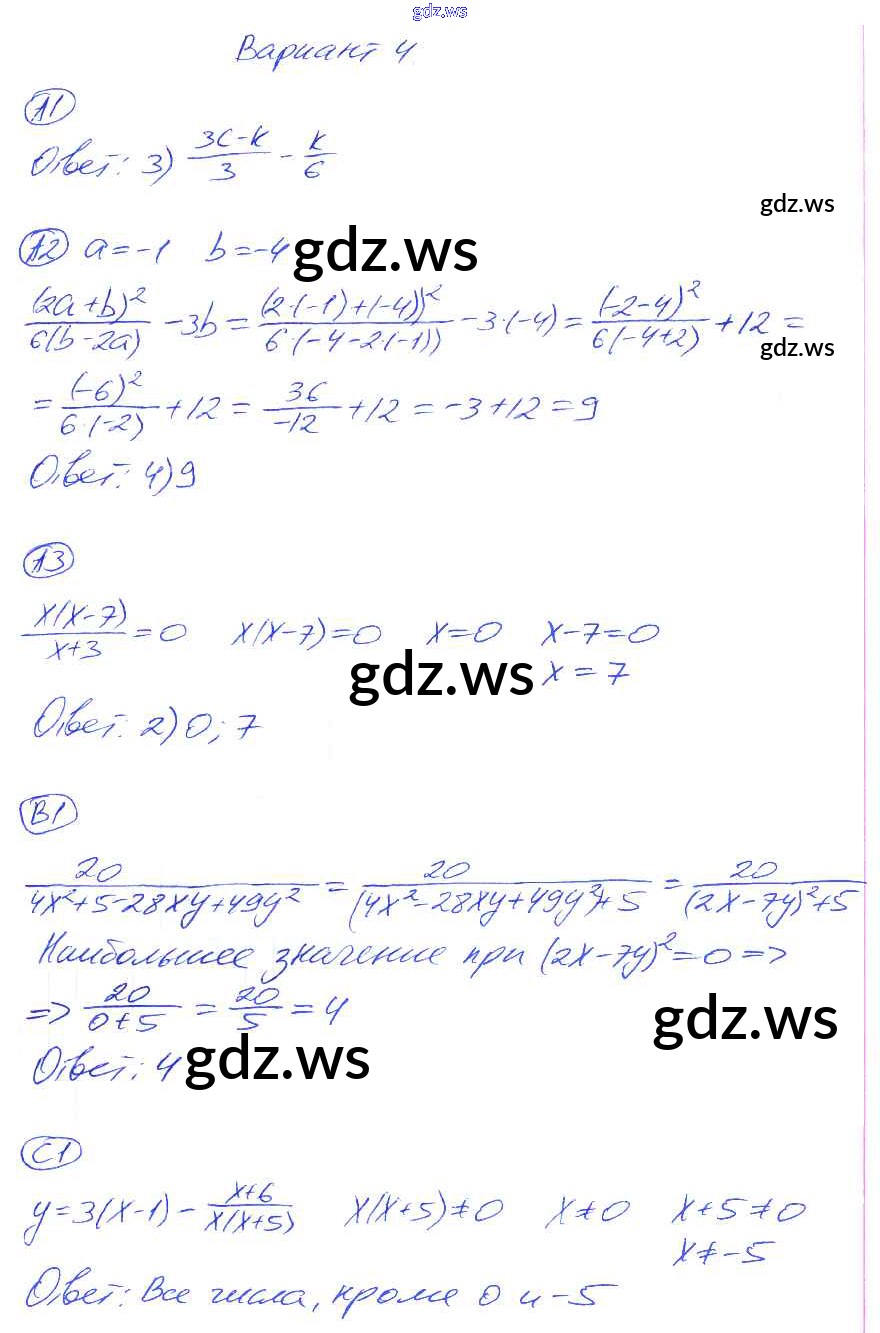 gdz.ws
Вариант 4
А1
Ответ: 3) (3c-k)/3 - k/6
gdz.ws
А2 a=-1 b=-4 gdz.ws
(2a+b)²/6(b-2a) -3b = (2·(-1)+(-4))²/6·(-4-2(-1)) -3·(-4) = (-2-4)²/6(-4+2) +12 =
gdz.ws
= (-6)²/6·(-2) +12 = 36/-12 +12 = -3+12 = 9
Ответ: 4) 9
А3
x(x-7)/x+3 = 0 x(x-7)=0 x=0 x-7=0
gdz.ws x = 7
Ответ: 2) 0; 7
В1
20/4x²+5-28xy+49y² = 20/(4x²-28xy+49y²)+5 = 20/(2x-7y)²+5
Наибольшее значение при (2x-7y)²=0 =>
=> 20/0+5 = 20/5 = 4 gdz.ws
Ответ: 4 gdz.ws
С1
y=3(x-1) - x+6/x(x+5) x(x+5)≠0 x≠0 x+5≠0
x≠-5
Ответ: Все числа, кроме 0 и -5